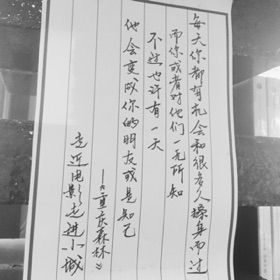 每天你都有机会和很多人擦身而过
而你或者对他们一无所知
不过也许有一天
他会变成你的朋友或是知己
——《重庆森林》
走近电影走进小城